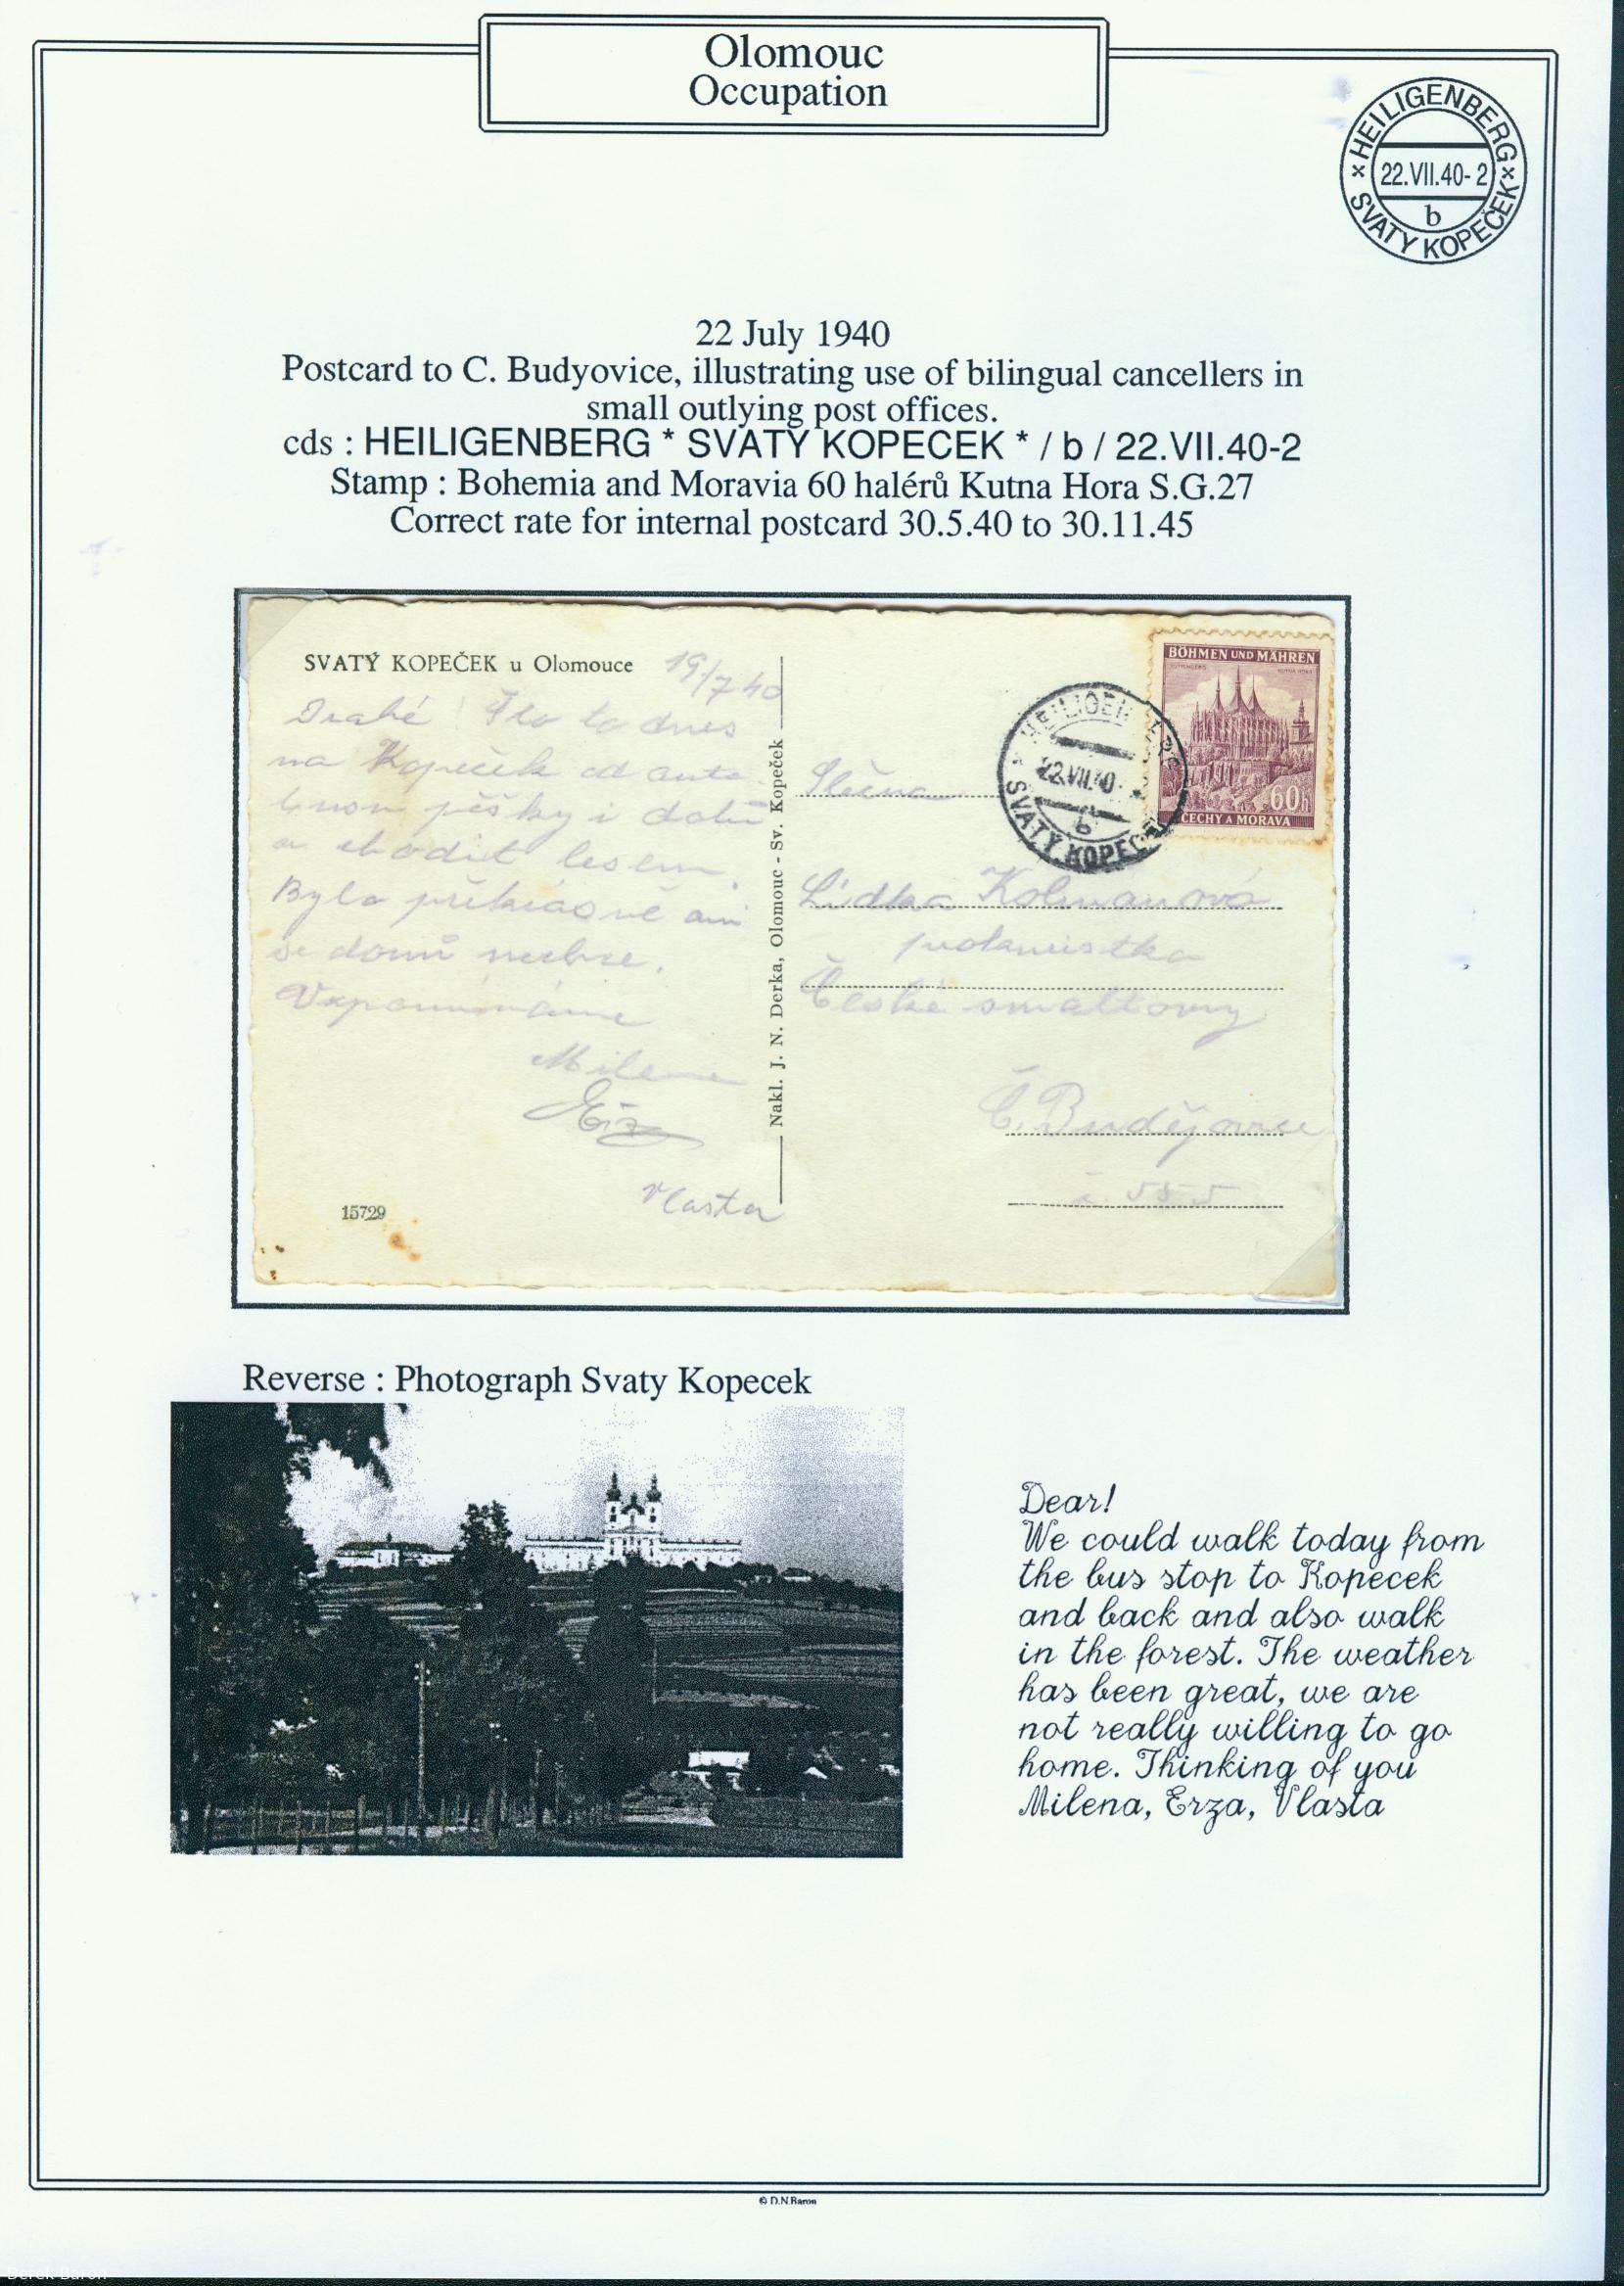 Olomouc
Occupation
HEILIGENBERG
22.VII.40-2
b
SVATY KOPEČEK
22 July 1940
Postcard to C. Budyovice, illustrating use of bilingual cancellers in
small outlying post offices.
cds : HEILIGENBERG * SVATY KOPECEK * / b / 22.VII.40-2
Stamp : Bohemia and Moravia 60 halérů Kutna Hora S.G.27
Correct rate for internal postcard 30.5.40 to 30.11.45
SVATÝ KOPEČEK u Olomouce 19/7 40
Drahé! Šlo to dnes
na Kopeček od auto-
busu pěšky i dolů
a chodit lesem.
Bylo překrásně ani
se domů nechce.
Vzpomínáme
Milena
Vlasta
15729
Nakl. J. N. Derka, Olomouc - Sv. Kopeček
BÖHMEN UND MÄHREN
60h
ČECHY A MORAVA
HEILIGENBERG
22.VII.40
b
SVATÝ KOPEČEK
Slečna
Lidka Kolmanová
České smaltovny
Č. Budějovice
Reverse : Photograph Svaty Kopecek
Dear!
We could walk today from
the bus stop to Kopecek
and back and also walk
in the forest. The weather
has been great, we are
not really willing to go
home. Thinking of you
Milena, Erza, Vlasta
© D.N.Baron
Derek Baron